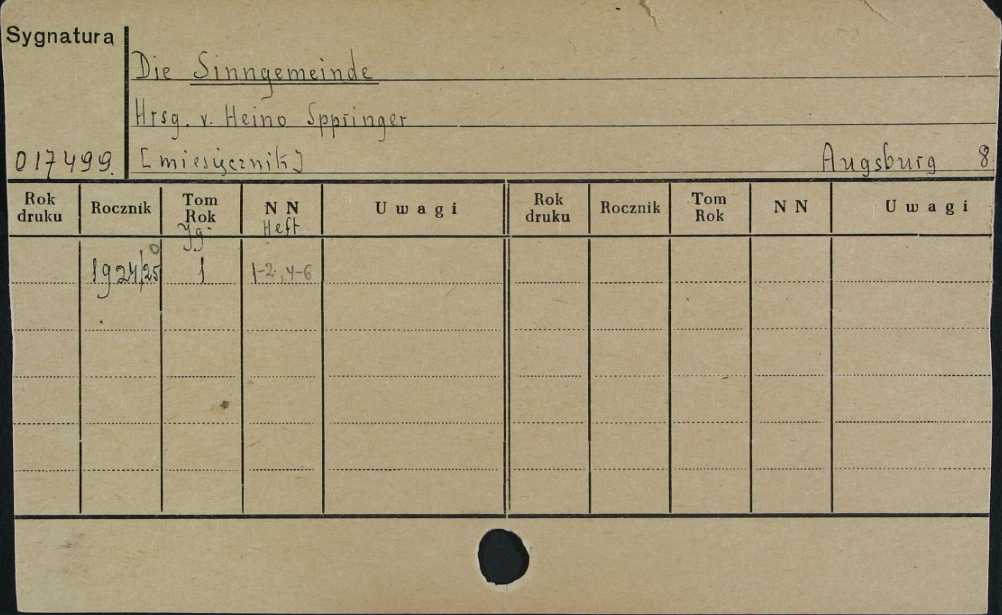 Sygnatura
Die Sinngemeinde
Hrsg. v. Heino Sppringer
017499. [miesięcznik] Augsburg 8
Rok druku Rocznik Tom Rok NN Uwagi Rok druku Rocznik Tom Rok NN Uwagi
Jg. Heft
1924/25 1 1-2, 4-6